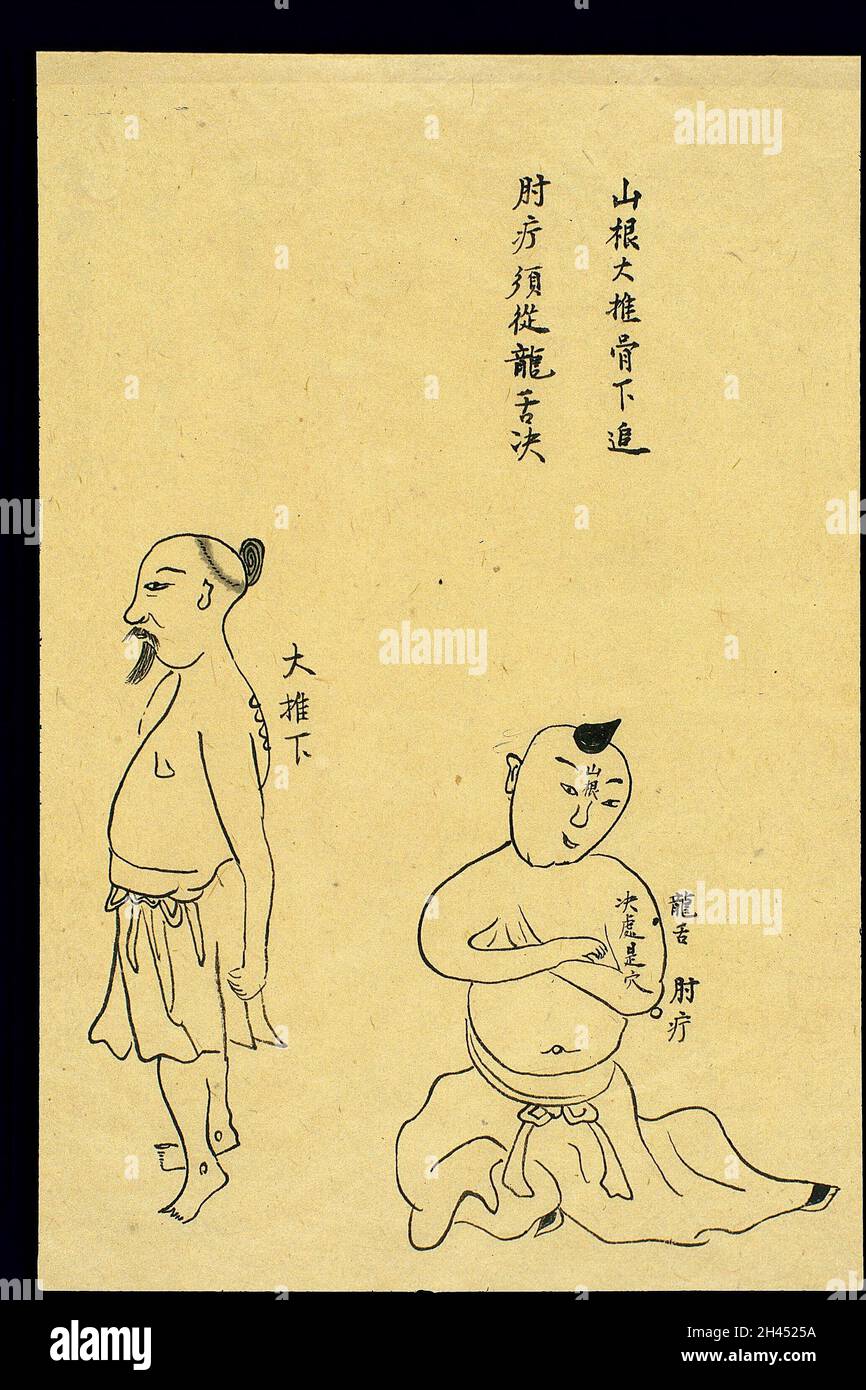 山根大推骨下追
肘疔須從龍舌决
大推下
山根
决處是穴
龍舌
肘疔
alamy
Image ID: 2H4525A
www.alamy.com
alamy stock photo